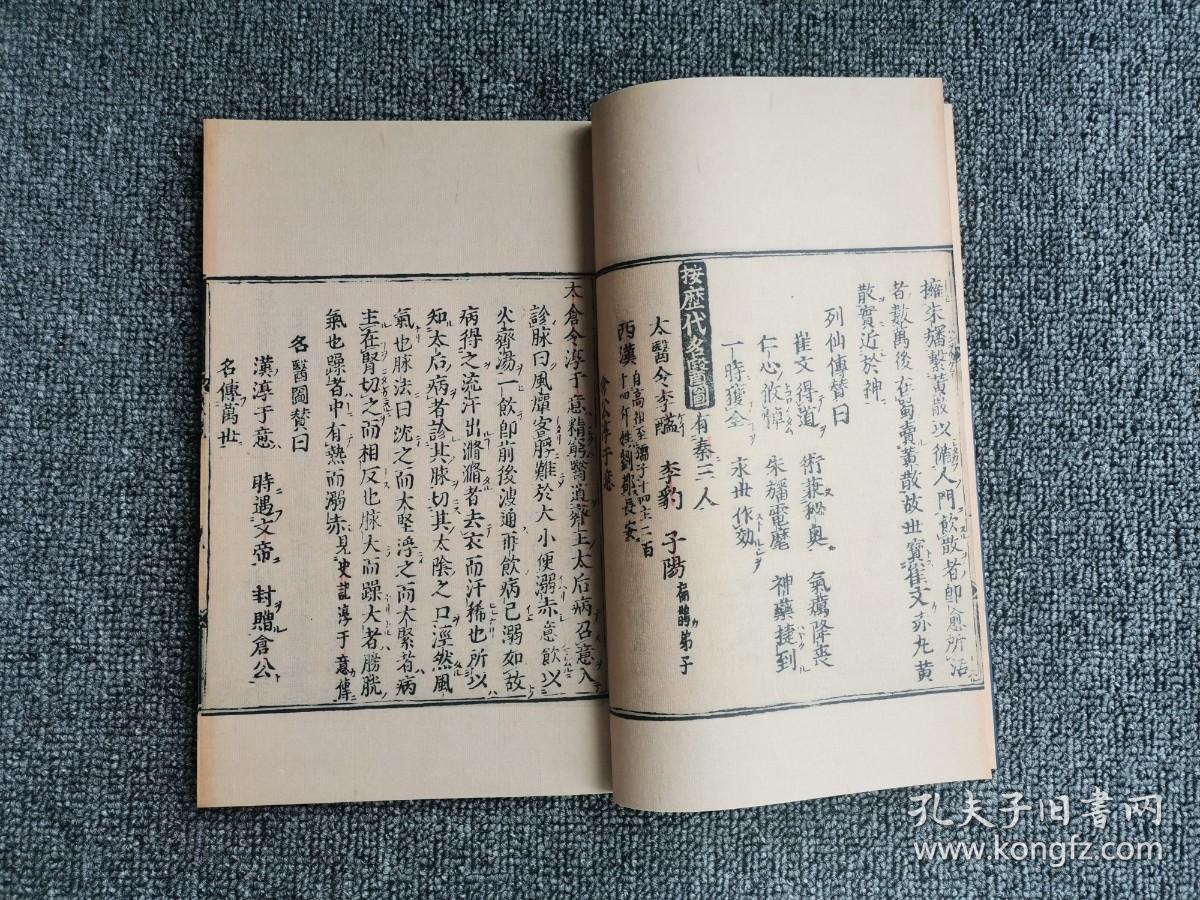 擁朱旛繫黃散以循人門飲散者即愈所活
者數萬後在蜀賣黃散故世寶崔文赤丸黃
散實近於神
列仙傳贊曰
崔文得道 術兼秘奥 氣癘降喪
仁心攸悼 朱旛電麾 神藥捷到
一時獲全 永世作効
按歴代名醫圖有秦三人
太醫令李醯 李豹 子陽扁鵲弟子
西漢自高祖至孺子十四主二百
十四年姓劉都長安
倉公淳于意
太倉令淳于意精窮醫道齊王太后病召意入
診脉曰風癉客脬難於大小便溺赤意飲以
火齊湯一飲即前後溲通再飲病已溺如故
病得之流汗出滫滫者去衣而汗稀也所以
知太后病者診其脉切其太陰之口溼然風
氣也脉法曰沈之而大堅浮之而大緊者病
主在腎切之而相反也脉大而躁大者膀胱
氣也躁者中有熱而溺赤見史記淳于意傳
名醫圖贊曰
漢淳于意 時遇文帝 封贈倉公
名傳萬世
孔夫子旧書网
www.kongfz.com